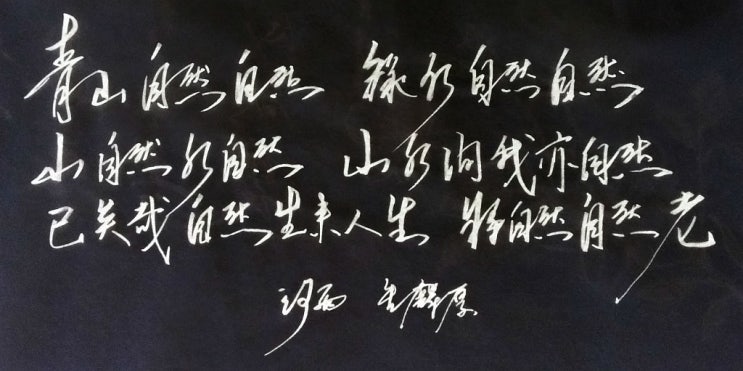 青山自然自然 绿水自然自然
山自然水自然 山水间我亦自然
已矣哉自然生来人生 将自然自然老